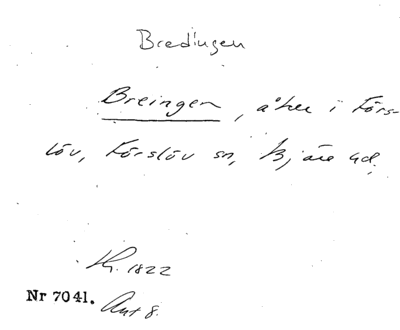 Bredingen
Breingen, åker i Förs-
löv, Förslöv sn, Bjäre hd.
Kh. 1822
Nr 7041. Akt 8.